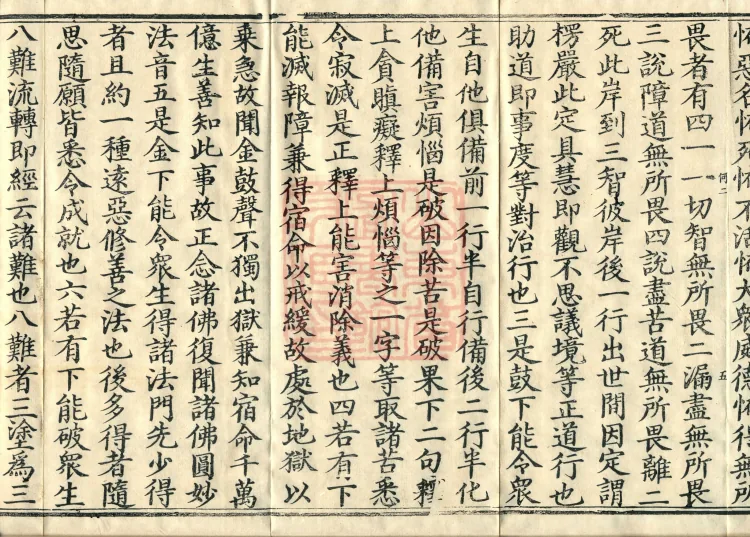 怖惡名怖死怖不活怖大眾威德怖得無所
畏者有四一一切智無所畏二漏盡無所畏
三說障道無所畏四說盡苦道無所畏離二
死此岸到三智彼岸後一行出世間因定謂
楞嚴此定具慧即觀不思議境等正道行也
助道即事度等對治行也三是鼓下能令衆
生自他俱備前一行半自行備後二行半化
他備害煩惱是破因除苦是破果下二句釋
上貪瞋癡釋上煩惱等之一字等取諸苦悉
令寂滅是正釋上能害消除義也四若有下
能滅報障兼得宿命以戒緩故處於地獄以
乘急故聞金鼓聲不獨出獄兼知宿命千萬
億生善知此事故正念諸佛復聞諸佛圓妙
法音五是金下能令衆生得諸法門先少得
者且約一種遠惡修善之法也後多得者隨
思隨願皆悉令成就也六若有下能破衆生
八難流轉即經云諸難也八難者三塗爲三
何二
五